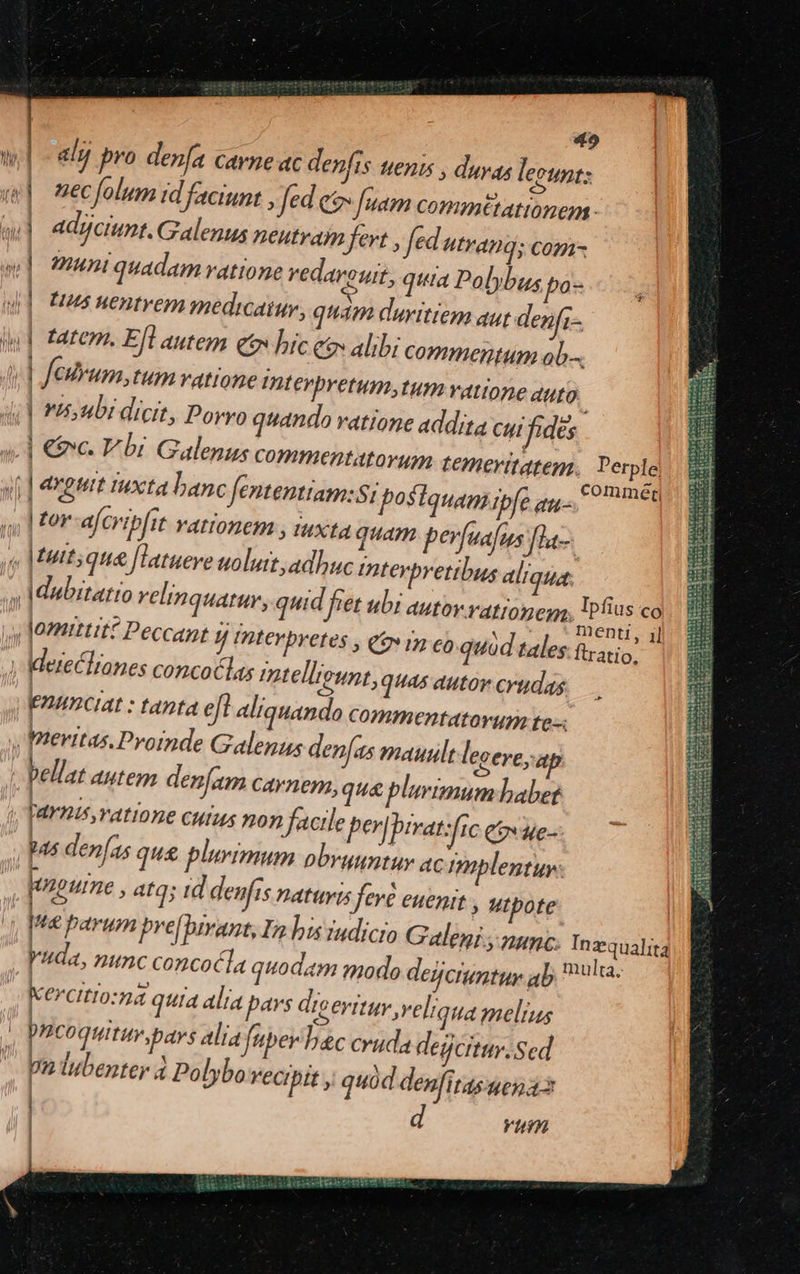 49
alij pro densa carne ac densis uenis, duras legunt:
nec solum id faciunt, sed & suam commētationem
adijciunt. Galenus neutram fert, sed utranq; com-
muni quadam ratione redarguit, quia Polybus po-
tius uentrem medicatur, quàm duritiem aut densi-
tatem. Est autem & hic & alibi commentum ob-
scurum, tum ratione interpretum, tum ratione auto
ris, ubi dicit, Porro quando ratione addita cui fidēs
&c. Vbi Galenus commentatorum temeritatem. Perple
arguit iuxta hanc sententiam: Si postquam ipse au- commēt
tor ascripsit rationem, iuxta quam persuasus sta-
tuit, quæ statuere uoluit, adhuc interpretibus aliqua
dubitatio relinquatur, quid fiet ubi autor rationem, Ipsius co
omittit? Peccant ij interpretes, & in eo quòd tales menti, il
deiectiones concoctas intelligunt, quas autor crudas stratio.
enunciat: tanta est aliquando commentatorum te-
meritas. Proinde Galenus densas mauult legere, ap
pellat autem densam carnem, quæ plurimum habet
carnis, ratione cuius non facile perspirat: sic & ue-
nas densas quæ plurimum obruuntur ac implentur
sanguine, atq; id densis naturis ferè euenit, utpote
quæ parum prespirant. In his iudicio Galeni, nunc Inæqualita
cruda, nunc concocta quodam modo deijciuntur ab multa.
exercitio: nā quia alia pars digeritur, reliqua melius
concoquitur, pars alia super hæc cruda deijcitur. Sed
non lubenter à Polybo recipit, quòd densitas uena-
d rum